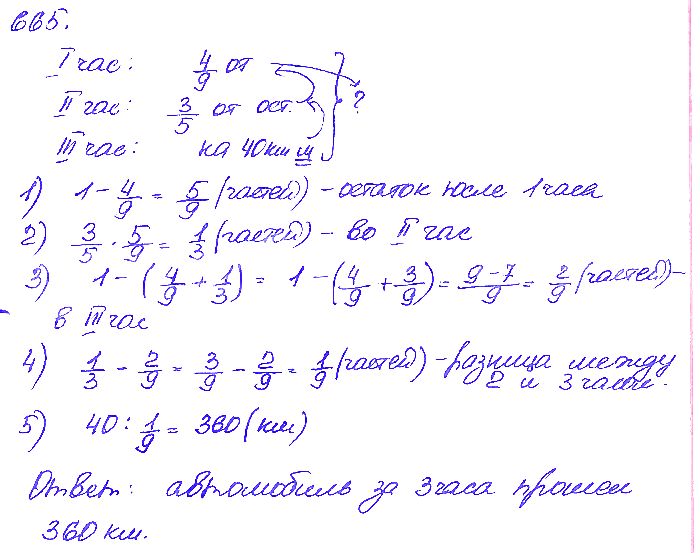 665.
I час: 4/9 от
II час: 3/5 от ост. ?
III час: на 40 км м
1) 1 - 4/9 = 5/9 (частей) - остаток после 1 часа
2) 3/5 · 5/9 = 1/3 (частей) - во II час
3) 1 - (4/9 + 1/3) = 1 - (4/9 + 3/9) = 9-7/9 = 2/9 (частей) -
в III час
4) 1/3 - 2/9 = 3/9 - 2/9 = 1/9 (частей) - разница между
2 и 3 часом.
5) 40 : 1/9 = 360 (км)
Ответ: автомобиль за 3 часа прошел
360 км.